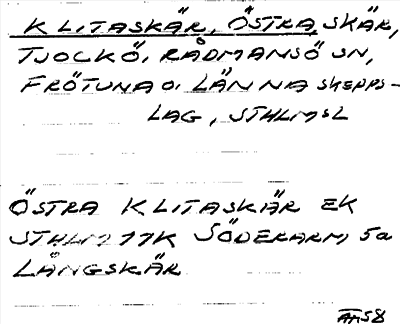 KLITASKÄR, ÖSTRA, SKÄR,
TJOCKÖ, RÅDMANSÖ SN,
FRÖTUNA O. LÄNNA SKEPPS-
LAG, STHLMSL
ÖSTRA KLITASKÄR EK
STHLM 11K SÖDERARM, 5a
LÅNGSKÄR